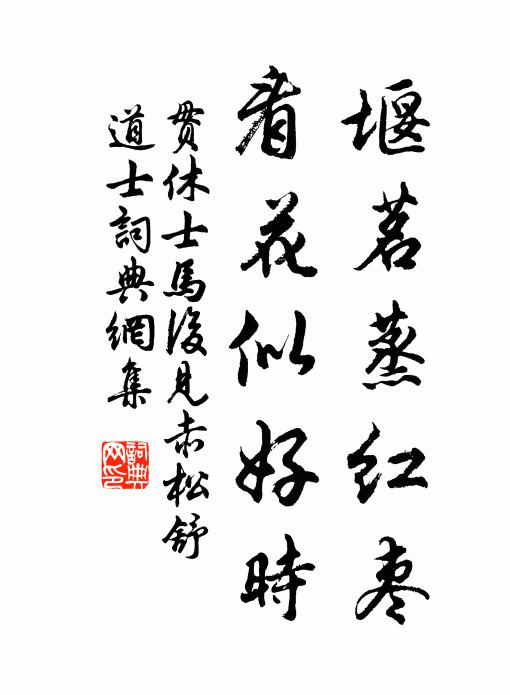 堰茗蒸红枣
看花似好時
貫休士馬後見赤松舒
道士詞典網集
詞典网印